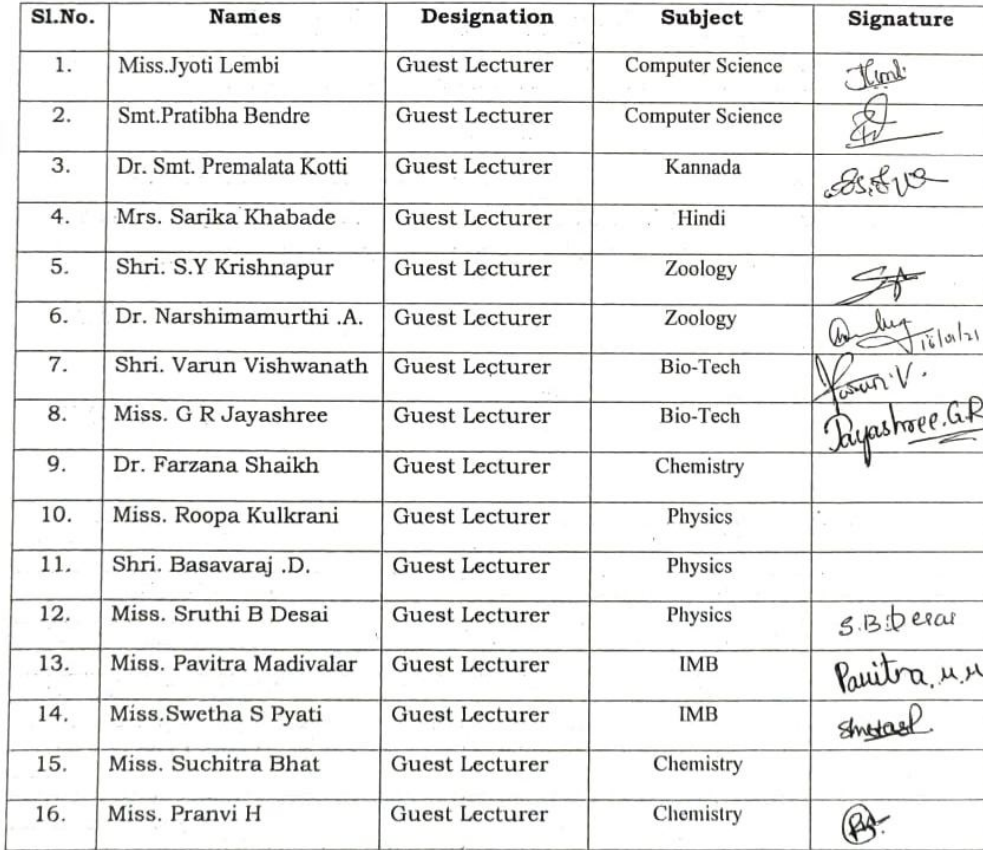 Sl.No. Names Designation Subject Signature
1. Miss.Jyoti Lembi Guest Lecturer Computer Science
2. Smt.Pratibha Bendre Guest Lecturer Computer Science
3. Dr. Smt. Premalata Kotti Guest Lecturer Kannada
4. Mrs. Sarika Khabade Guest Lecturer Hindi
5. Shri. S.Y Krishnapur Guest Lecturer Zoology
6. Dr. Narshimamurthi .A. Guest Lecturer Zoology
7. Shri. Varun Vishwanath Guest Lecturer Bio-Tech Varun.V.
8. Miss. G R Jayashree Guest Lecturer Bio-Tech Jayashree.G.R
9. Dr. Farzana Shaikh Guest Lecturer Chemistry
10. Miss. Roopa Kulkrani Guest Lecturer Physics
11. Shri. Basavaraj .D. Guest Lecturer Physics
12. Miss. Sruthi B Desai Guest Lecturer Physics S.B.Desai
13. Miss. Pavitra Madivalar Guest Lecturer IMB Pavitra.M.M
14. Miss.Swetha S Pyati Guest Lecturer IMB
15. Miss. Suchitra Bhat Guest Lecturer Chemistry
16. Miss. Pranvi H Guest Lecturer Chemistry